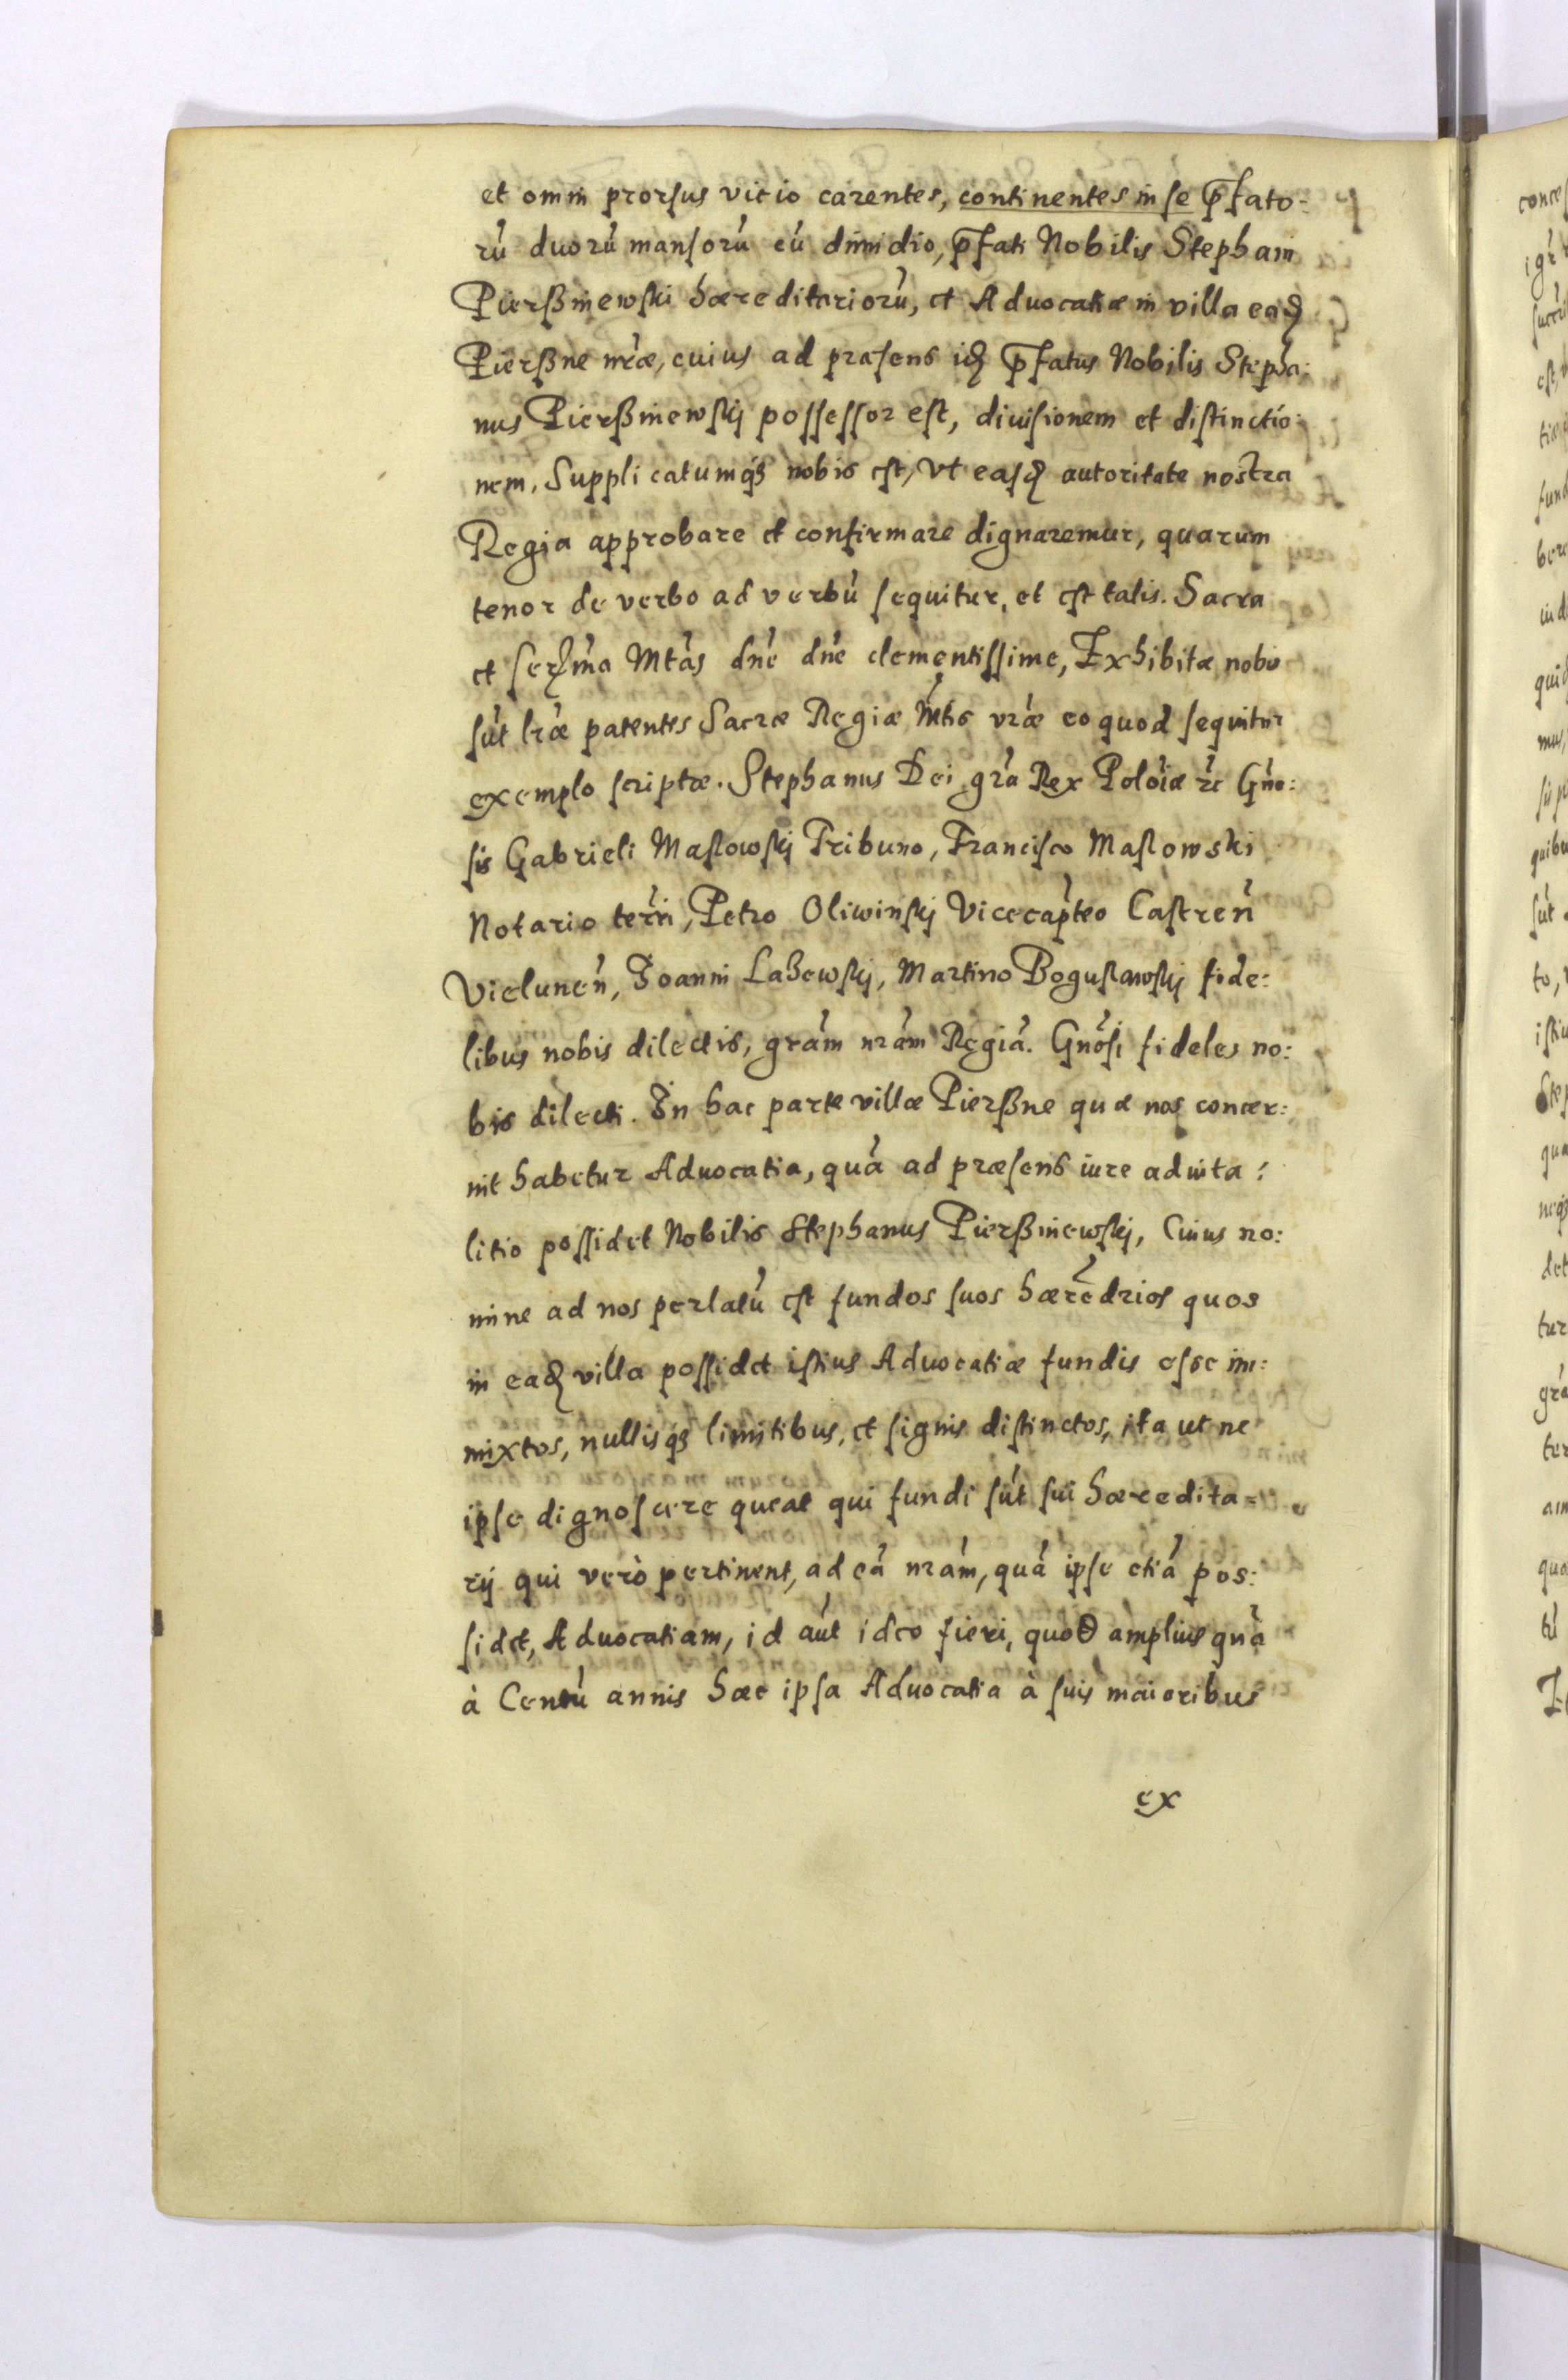 et omni prorſus vicio carentes, continentes in ſe p̄fato-
rú duorú manſorú cú dimidio, p̄fati Nobilis Stephani
Pierßniewſki hæreditariorú, et Advocatiæ in villa eaꝫ
Pierßne nr̃æ, cuius ad præſens iꝫ p̄fatus Nobilis Stepha:
nus Pierßniewſkj poſſeſſor eſt, diuiſionem et diſtinctio:
nem, Supplicatumqꝫ nobis eſt, Vt eaſꝫ autoritate noſtra
Regia approbare et confirmare dignaremur, quarum
tenor de verbo ad verbú ſequitur, et eſt talis. Sacra
et Serꝫm̃a Mtãs dñe dñe clementiſſime, Exhibitæ nobis
ſút lr̃æ patentes Sacræ Regiæ Mt̃is vr̃æ eo quod ſequitur
exemplo ſcriptæ. Stephanus Dei gr̃a Rex Polõiæ ꝛc Gño:
ſis Gabrieli Maſłowſkj Tribuno, Franciſco Maſłowski
Notario terr̃n, Petro Oliwinſkj Vicecap̃teo Caſtreñ
Vieluneñ, Joanni Łaßewſkj, Martino Boguſławſkj fide:
libus nobis dilectis, grãm nrãm Regiá. Gnõſi fideles no:
bis dilecti. In hac parte villæ Pierßne quæ nos concer:
nit habetur Advocatia, quá ad præſens iure aduita:
litio poſſidet Nobilis Stephanus Pierßniewſkj, Cuius no:
mine ad nos perlatú eſt fundos ſuos hærẽdrios quos
in eaꝫ villa poſſidet iſtius Advocatiæ fundis eſse im:
mixtos, nullisqꝫ limitibus, et ſignis diſtinctos, ita ut ne
ipſe dignoſcere queat qui fundi ſút ſui hæredita-
rij qui verò pertinent, ad eá nrãm, quá ipſe etiá pos:
ſidet, Advocatiam, id aũt ideo fieri, quod amplius quã
à Centú annis hæc ipſa Advocatia à ſuis maioribus
ex